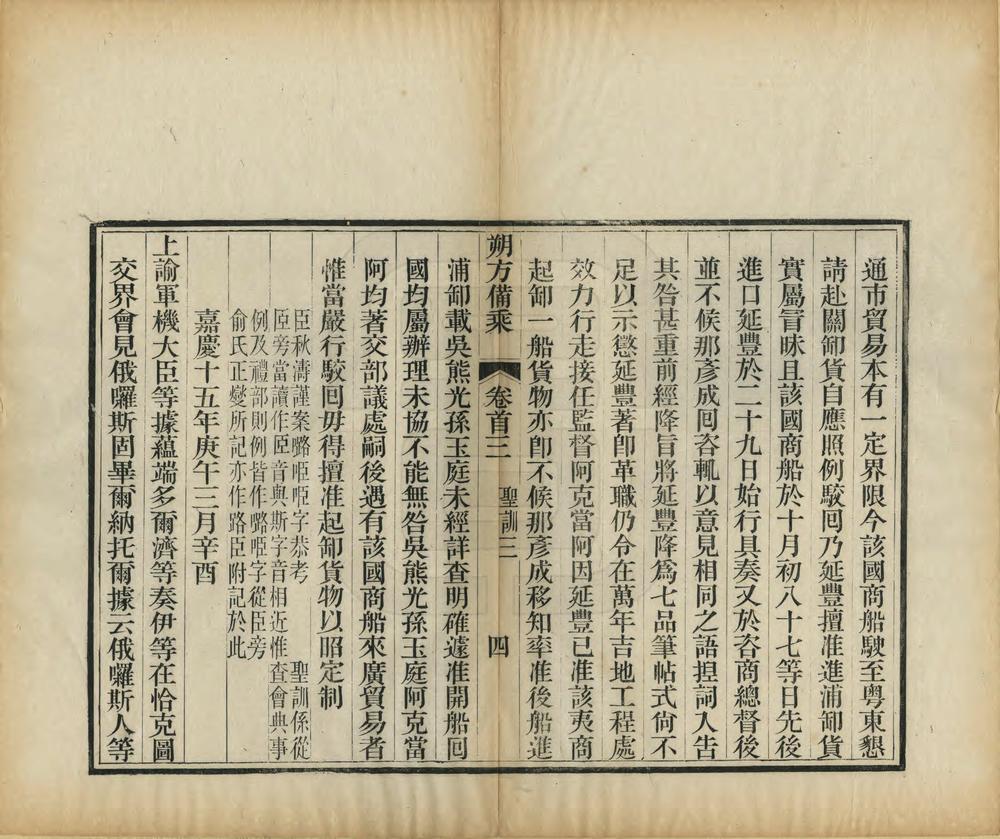 通市貿易本有一定界限今該國商船駛至粵東懇
請赴關卸貨自應照例駁囘乃延豐擅准進浦卸貨
實屬冒昧且該國商船於十月初八十七等日先後
進口延豐於二十九日始行具奏又於咨商總督後
並不候那彥成囘咨輒以意見相同之語揑詞入告
其咎甚重前經降旨將延豐降爲七品筆帖式尙不
足以示懲延豐著卽革職仍令在萬年吉地工程處
效力行走接任監督阿克當阿因延豐已准該夷商
起卸一船貨物亦卽不候那彥成移知率准後船進
朔方備乘 卷首三 聖訓三 四
浦卸載吳熊光孫玉庭未經詳查明確遽准開船囘
國均屬辦理未協不能無咎吳熊光孫玉庭阿克當
阿均著交部議處嗣後遇有該國商船來廣貿易者
惟當嚴行駁囘毋得擅准起卸貨物以昭定制
臣秋濤謹案嚕啞啞字恭考 聖訓係從
臣旁當讀作臣音與斯字音相近惟查會典事
例及禮部則例皆作嚕啞字從臣旁
俞氏正燮所記亦作路臣附記於此
嘉慶十五年庚午三月辛酉
上諭軍機大臣等據蘊端多爾濟等奏伊等在恰克圖
交界會見俄囉斯固畢爾納托爾據云俄囉斯人等